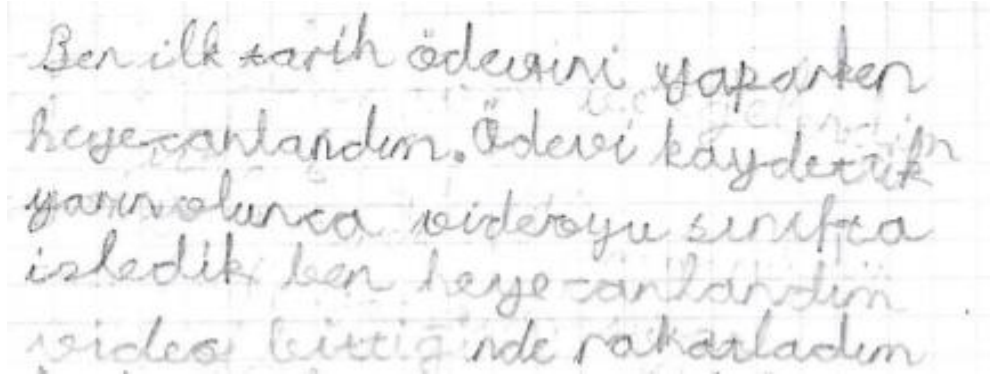 Ben ilk tarih ödevini yaparken
heyecanlandım. Ödevi kaydettik
yarın olunca videoyu sınıfta
isledik ben heyecanlandım
video bittiğinde rahatladım